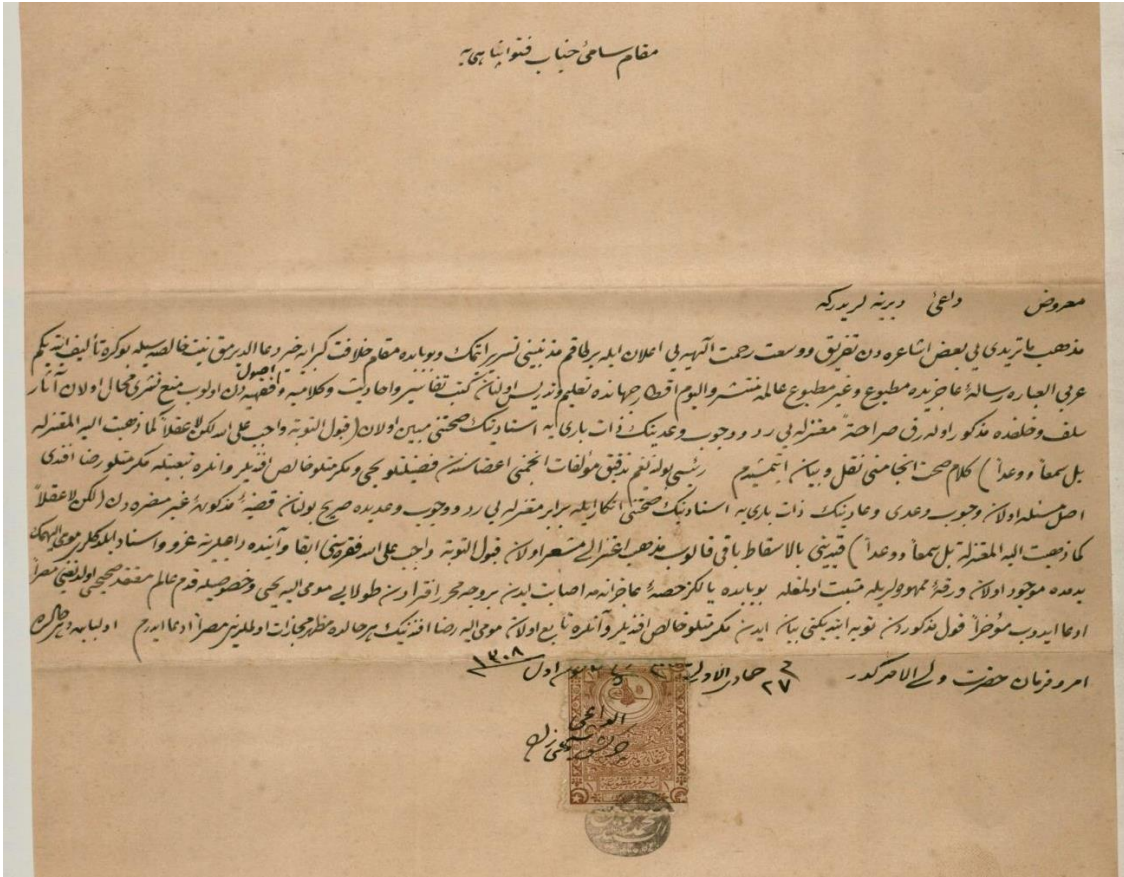 مقام سامئ جناب فتوا پناهی‌یه
معروض داعئ دیرینه لریدرکه
مذهب ماتریدی یی بعض اشاعره دن تفریق ووسعت رحمت الهیه یی اعلان ایله برطاقم مذنبینی تبشیر ایتمك وبوبابده مقام خلافت کبرایه خیر دعا الدیرمق نیت خالصه سیله بوکره تألیف ایتدیکم
عربی العباره رسالۀ عاجزیده مطبوع وغیر مطبوع عالمه منتشر والیوم اقطار جهانده تعلیم وتدریس اولنان کتب تفاسیر واحادیث وکلامیه وفقهیه دن اصول اولوب منع نشری محال اولان آثار
سلف وخلفده مذکور اوله رق صراحةً معتزله یی رد ووجوب وعدینك ذات باری یه اسنادینك صحتنی مبین اولان (قبول التوبة واجب علی الله لکن لا عقلاً کما ذهبت الیه المعتزلة
بل سمعاً ووعداً) کلام صحت انجامنی نقل وبیان ایتمشیدم رئیسی بولندیغم تدقیق مؤلفات انجمنی اعضاسندن فضیلتلو یحیی ومکرمتلو خالص افندیلر وانلره تبعیتله مکرمتلو رضا افندی
اصل مسئله اولان وجوب وعدی وعادینك ذات باری یه اسنادینك صحتنی انکار ایله برابر معتزله یی رد ووجوب وعدیده صریح بولنان قضیۀ مذکورۀ غیر مضره دن (لکن لا عقلاً
کما ذهبت الیه المعتزلة بل سمعاً ووعداً) قیدینی بالاسقاط باقی قالوب مذهب اعتزالی مشعر اولان قبول التوبة واجب علی الله فقره سنی ابقا وآننده داعیلرینه عزو واسناد ایلدکلری مومی الیهمك
یدمده موجود اولان ورقۀ ممهوره لریله مثبت اولمغله بوبابده یالکز حصۀ عاجزانه مه اصابت ایدن بروجه محرر افترادن طولایی مومی الیه یحیی وخصوصیله قدم عالم معتقد صحیحی اولدیغنی مصراً
ادعا ایدوب مؤخراً قول مذکوردن توبه ایتدیکنی بیان ایدن مکرمتلو خالص افندیلر وآنلره تابع اولان مومی الیه رضا افندینك هر حالده مظهر مجازات اولملرینی مصراً ادعا ایدرم اولبابده وهر حالده
امر وفرمان حضرت ولی الامرکدر فی ٢٧ جمادی الاولی اول ١٣٠٨
الداعی